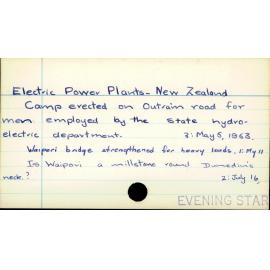 Electric Power Plants - New Zealand
Camp erected on Outram road for
men employed by the state hydro-
electric department. 3: May 5, 1963.
Waipori bridge strengthened for heavy loads. 1: My 11
Is Waipori a millstone round Dunedin's
neck.? 2: July 16,
EVENING STAR